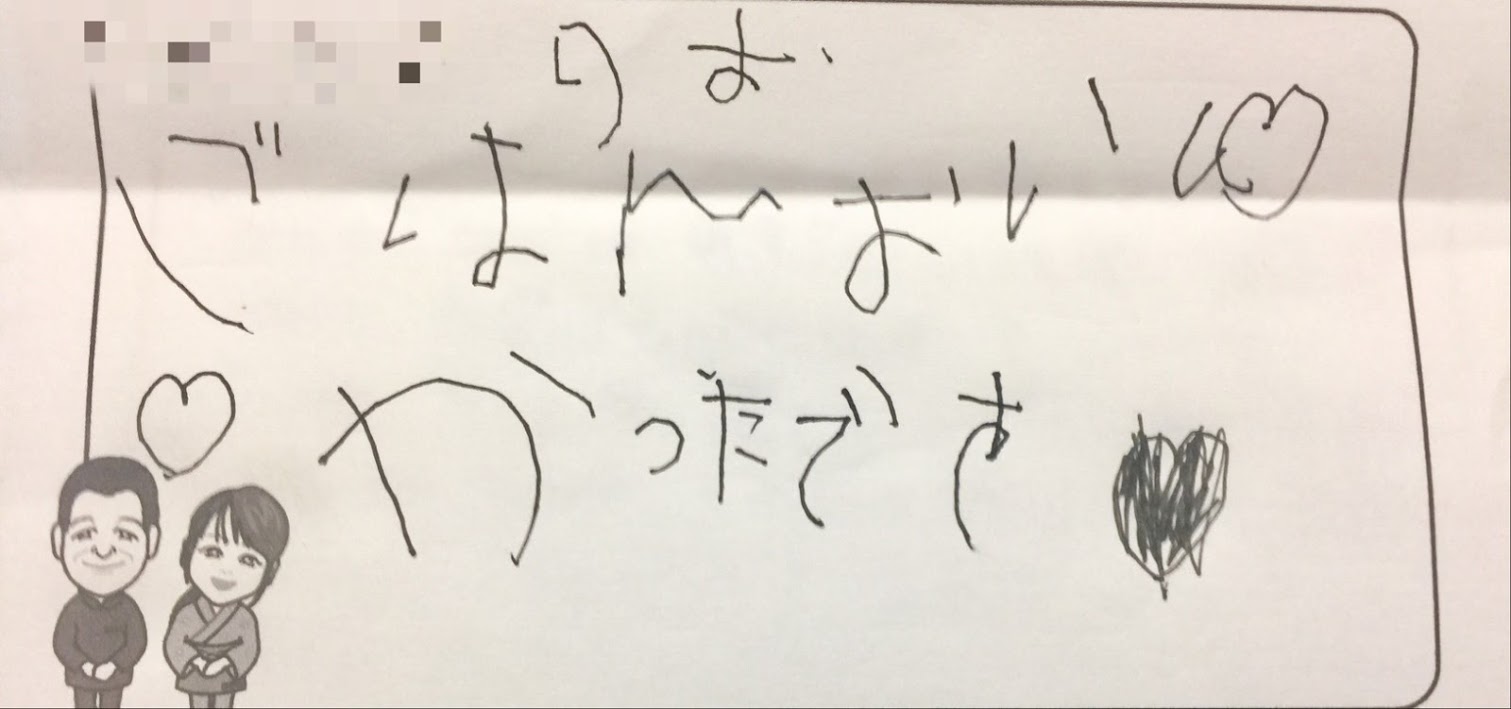 りお
ごはんおいし♡
♡かったです♥